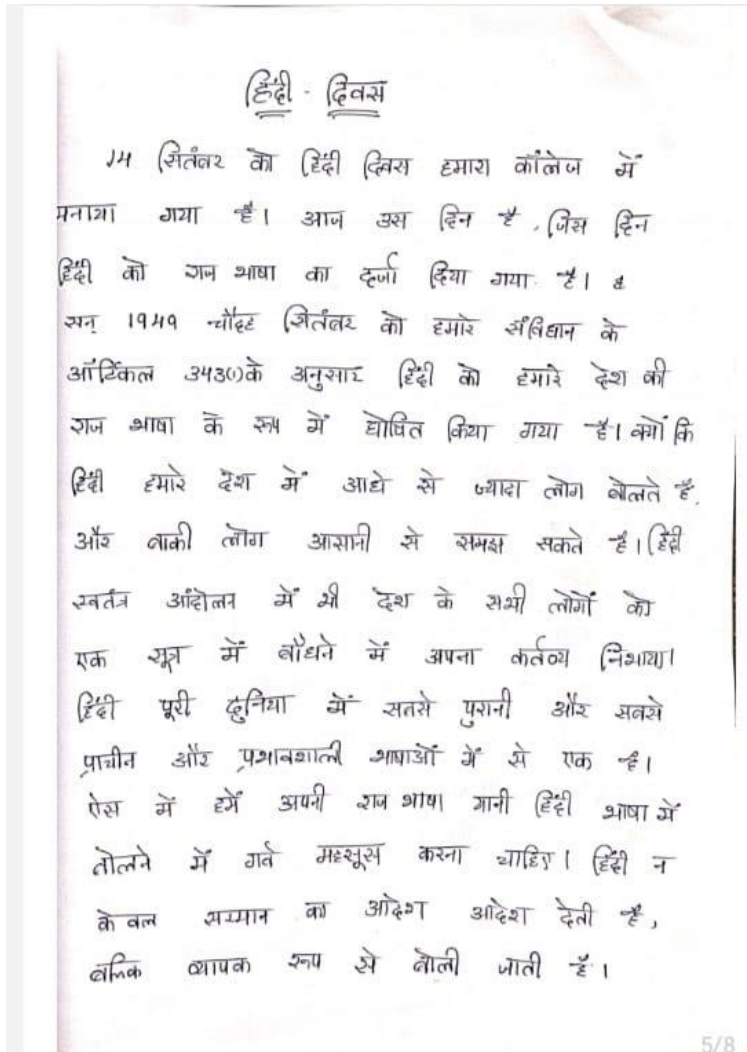 हिंदी - दिवस
14 सितंबर को हिंदी दिवस हमारा कॉलेज में
मनाया गया है। आज उस दिन है, जिस दिन
हिंदी को राज भाषा का दर्जा दिया गया है।
सन् 1949 चौदह सितंबर को हमारे संविधान के
ऑर्टिकल 343(1)के अनुसार हिंदी को हमारे देश की
राज भाषा के रूप में घोषित किया गया है। क्यों कि
हिंदी हमारे देश में आधे से ज्यादा लोग बोलते है,
और बाकी लोग आसानी से समझ सकते है। हिंदी
स्वतंत्र आंदोलन में भी देश के सभी लोगों को
एक सूत्र में बाँधने में अपना कर्तव्य निभाया।
हिंदी पूरी दुनिया में सबसे पुरानी और सबसे
प्राचीन और प्रभावशाली भाषाओं में से एक है।
ऐस में हमें अपनी राज भाषा यानी हिंदी भाषा में
बोलने में गर्व महसूस करना चाहिए। हिंदी न
केवल सम्मान का आदेश आदेश देती है,
बल्कि व्यापक रूप से बोली जाती है।
5/8